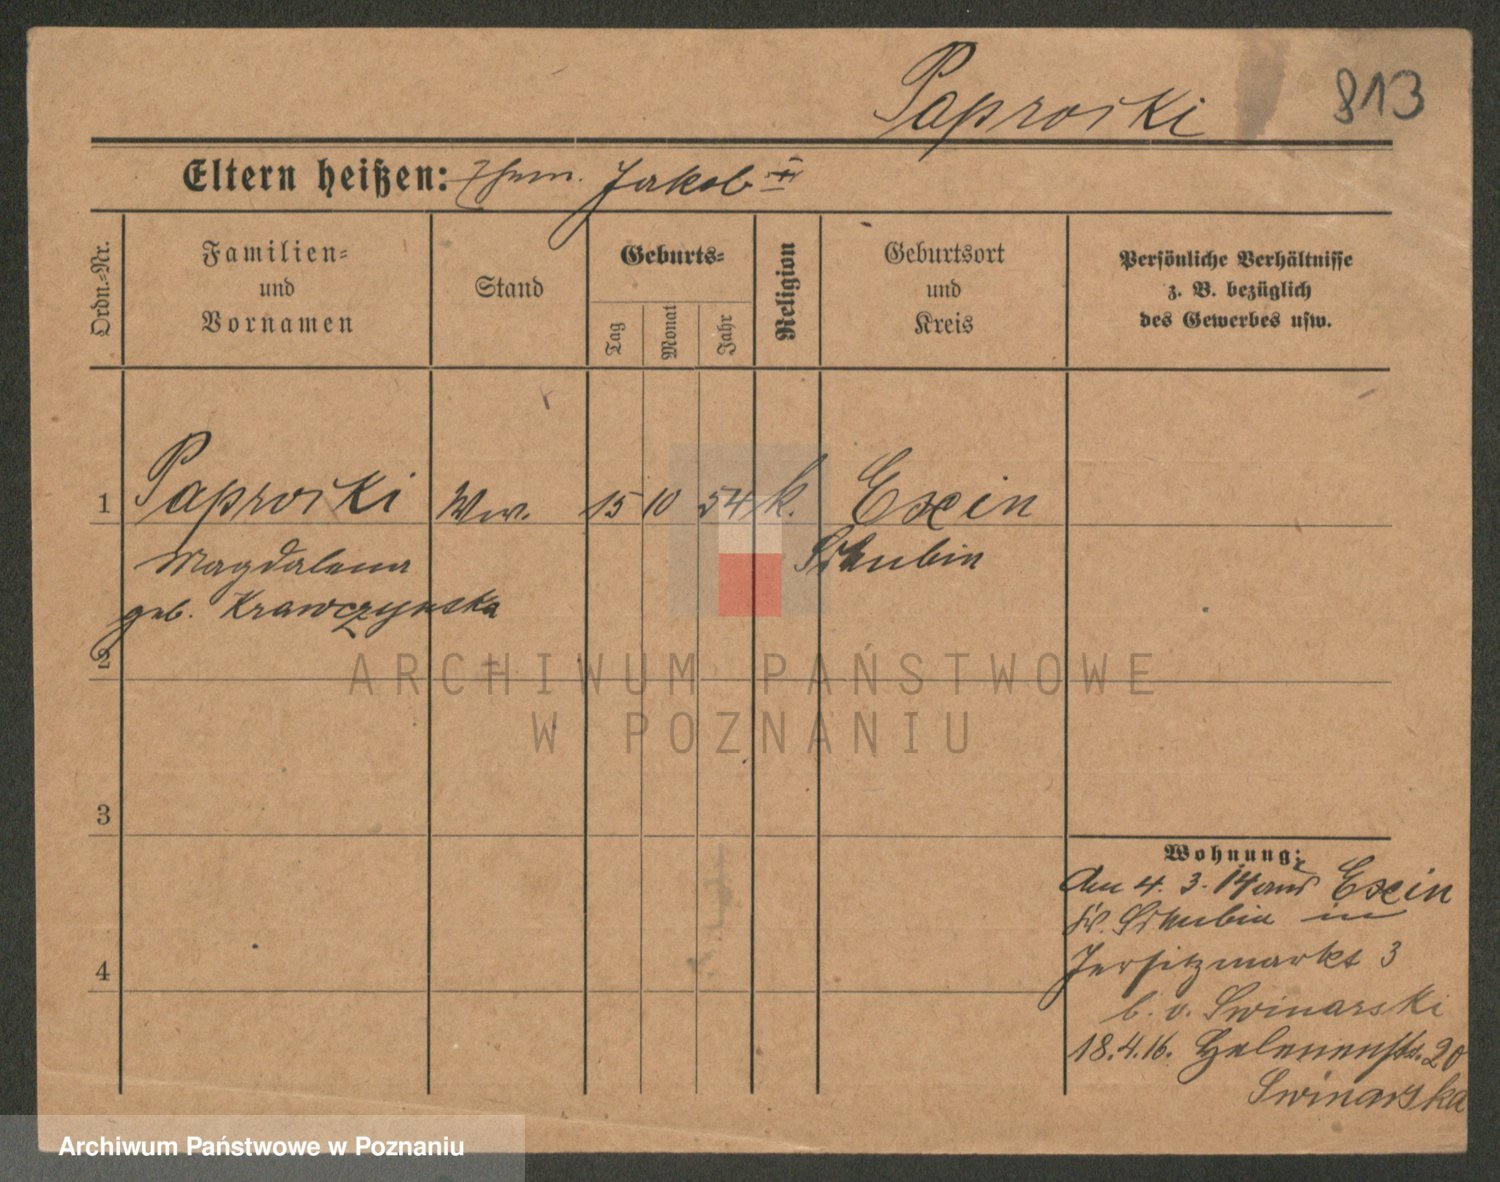 Paproski
813
Eltern heißen: Ehem. Jakob
Ordn.-Nr.
Familien-
und
Vornamen
Stand
Geburts-
Tag
Monat
Jahr
Religion
Geburtsort
und
Kreis
Persönliche Verhältnisse
z. B. bezüglich
des Gewerbes usw.
1 Paproski Wwe. 15 10 54 k. Exin
Magdalena Schubin
geb. Krawczynska
2
ARCHIWUM PAŃSTWOWE
W POZNANIU
3
4
Wohnung:
Am 4. 3. 14 aus Exin
Kr. Schubin in
Jersitzmarkt 3
b. v. Swinarski
18.4.16. Helenenstr. 20
Swinarska
Archiwum Państwowe w Poznaniu